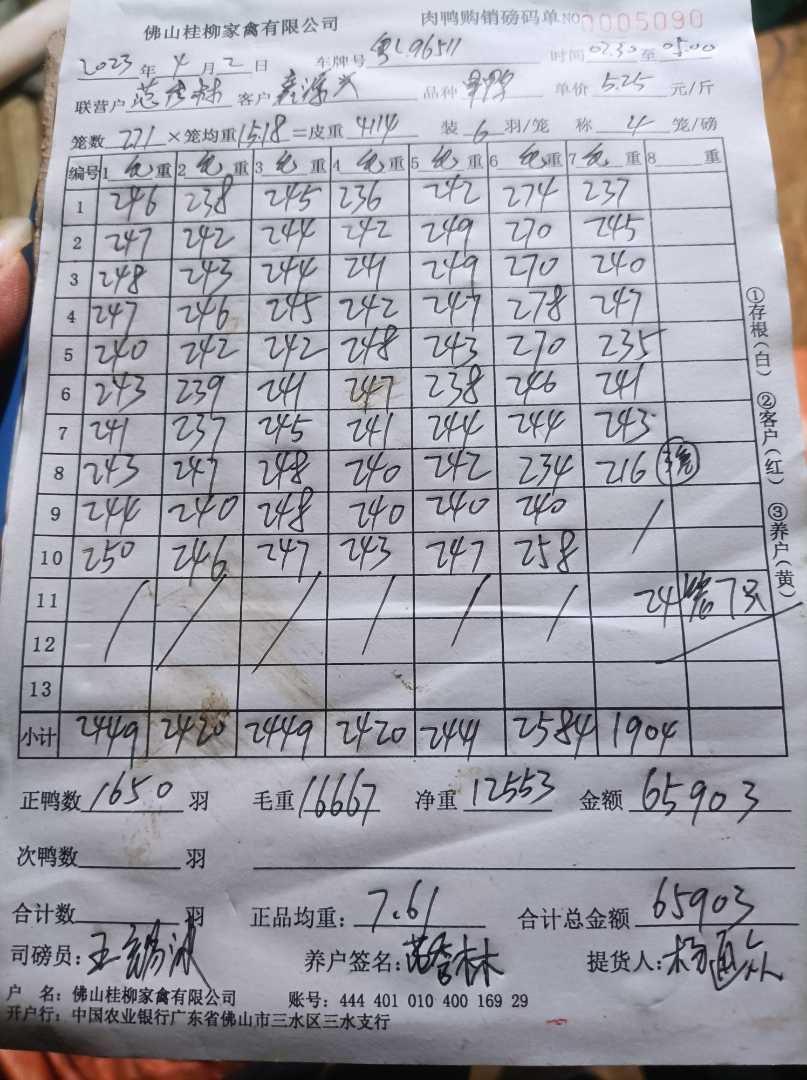 佛山桂柳家禽有限公司 肉鸭购销磅码单 NO 0005090
2023 年 4 月 2 日 车牌号 粤L96511 时间 02.30 至 05.00
联营户 范秀林 客户 品种 单价 5.25 元/斤
笼数 271 ×笼均重 15.18 =皮重 4114 装 6 羽/笼 称 4 笼/磅
编号 1 毛 重 2 毛 重 3 毛 重 4 毛 重 5 毛 重 6 毛 重 7 毛 重 8 重
1 246 238 245 236 242 274 237
2 247 242 244 242 249 270 245
3 248 243 244 241 249 270 240
4 247 246 245 242 247 278 247
5 240 242 242 248 243 270 235
6 243 239 241 247 238 246 241
7 241 237 245 241 244 244 243
8 243 247 248 240 242 234 216
9 244 240 248 240 240 240 /
10 250 246 247 243 247 258
11 / / / / / / 24 笼 7只
12
13
小计 2449 2420 2449 2420 2441 2584 1904
正鸭数 1650 羽 毛重 16667 净重 12553 金额 65903
次鸭数 羽
合计数 羽 正品均重: 7.61 合计总金额 65903
司磅员: 王锡 养户签名: 范秀林 提货人: 杨通众
户 名: 佛山桂柳家禽有限公司 账号: 444 401 010 400 169 29
开户行: 中国农业银行广东省佛山市三水区三水支行
①存根(白) ②客户(红) ③养户(黄)